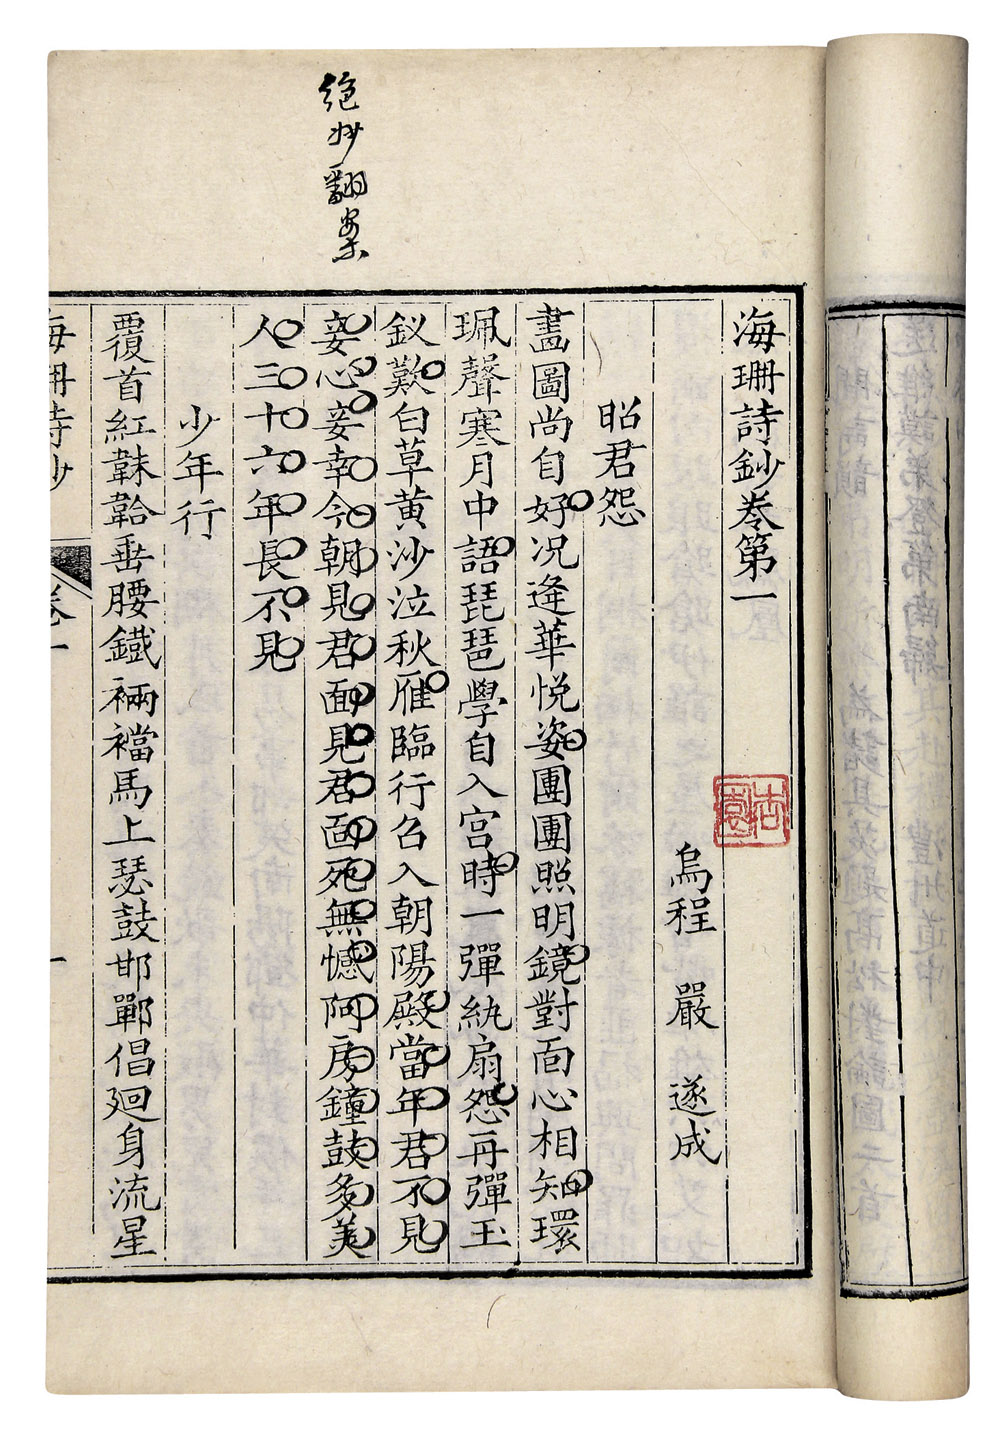 海珊詩鈔卷第一
烏程 嚴 遂成
昭君怨
畵圖尚自好况逢華悅姿團團照明鏡對面心相知環
珮聲寒月中語琵琶學自入宮時一彈紈扇怨再彈玉
釵歎白草黃沙泣秋雁臨行召入朝陽殿當年君不見
妾心妾幸今朝見君面見君面死無憾阿房鐘鼓多美
人三十六年長不見
少年行
覆首紅韎韐垂腰鐵裲襠馬上瑟鼓邯鄲倡廻身流星
海珊詩鈔 卷一 一
絶妙翻案
杏園